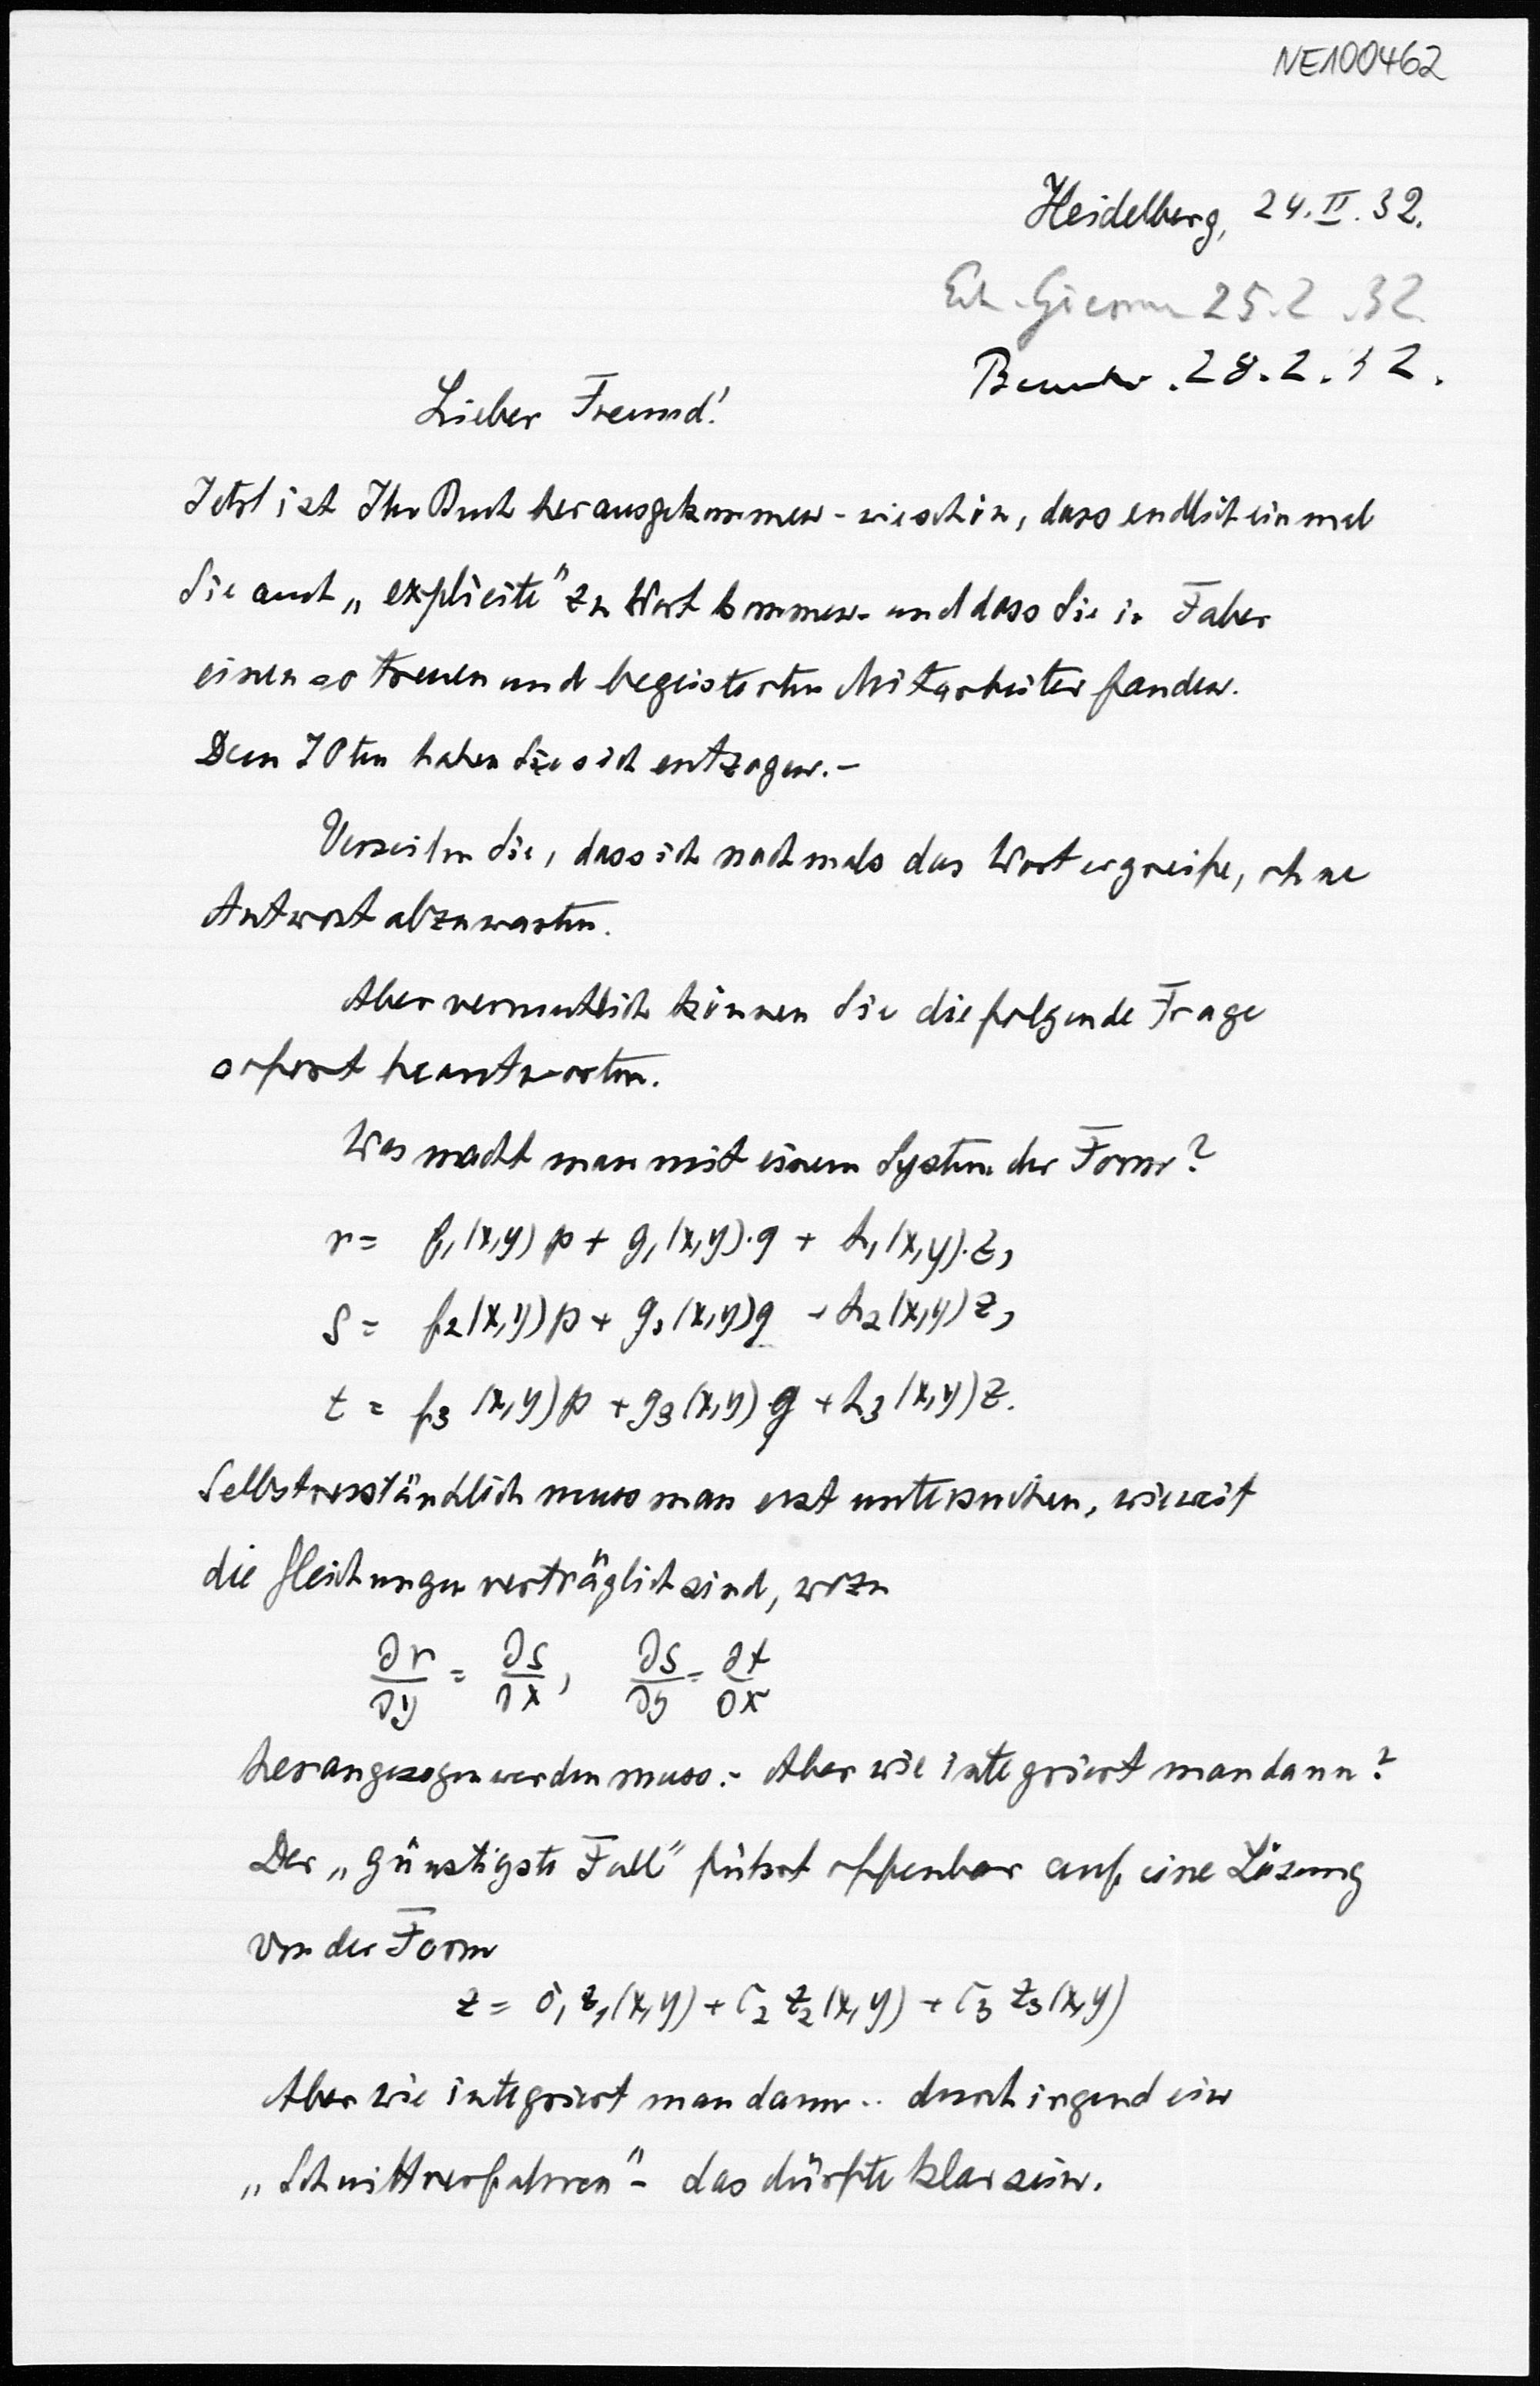 NE100462
Heidelberg, 24.II.32.
Erh. Giessen 25.2.32
Beantw. 28.2.32.
Lieber Freund!
Jetzt ist Ihr Buch herausgekommen - wie schön, dass endlich einmal
Sie auch „explicite" zu Wort kommen - und dass Sie in Faber
einen so treuen und begeisterten Mitarbeiter fanden.
Dem 70ten haben Sie sich entzogen. -
Verzeihen Sie, dass ich nochmals das Wort ergreife, ohne
Antwort abzuwarten.
Aber vermutlich können Sie die folgende Frage
sofort beantworten.
Was macht man mit einem System der Form?
r = f₁(x,y) p + g₁(x,y)·q + h₁(x,y)·z,
s = f₂(x,y) p + g₂(x,y) q + h₂(x,y) z,
t = f₃(x,y) p + g₃(x,y) q + h₃(x,y) z.
Selbstverständlich muss man erst untersuchen, wieweit
die Gleichungen verträglich sind, wozu
∂r/∂y = ∂s/∂x, ∂s/∂y = ∂t/∂x
herangezogen werden muss. - Aber wie integriert man dann?
Der „günstigste Fall" führt offenbar auf eine Lösung
von der Form
z = c₁ z₁(x,y) + c₂ z₂(x,y) + c₃ z₃(x,y)
Aber wie integriert man dann .. durch irgend ein
„Schnittverfahren" - das dürfte klar sein.